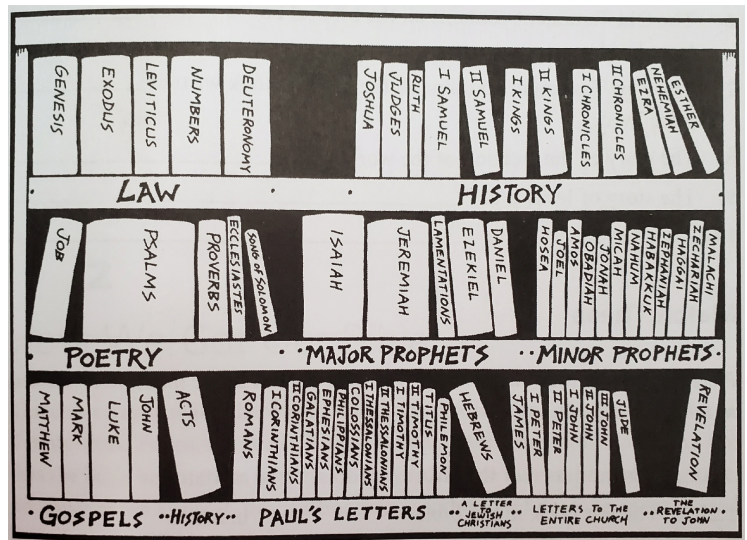 GENESIS
EXODUS
LEVITICUS
NUMBERS
DEUTERONOMY
JOSHUA
JUDGES
RUTH
I SAMUEL
II SAMUEL
I KINGS
II KINGS
I CHRONICLES
II CHRONICLES
EZRA
NEHEMIAH
ESTHER
LAW
HISTORY
JOB
PSALMS
PROVERBS
ECCLESIASTES
SONG OF SOLOMON
ISAIAH
JEREMIAH
LAMENTATIONS
EZEKIEL
DANIEL
HOSEA
JOEL
AMOS
OBADIAH
JONAH
MICAH
NAHUM
HABAKKUK
ZEPHANIAH
HAGGAI
ZECHARIAH
MALACHI
POETRY
MAJOR PROPHETS
MINOR PROPHETS
MATTHEW
MARK
LUKE
JOHN
ACTS
ROMANS
I CORINTHIANS
II CORINTHIANS
GALATIANS
EPHESIANS
PHILIPPIANS
COLOSSIANS
I THESSALONIANS
II THESSALONIANS
I TIMOTHY
II TIMOTHY
TITUS
PHILEMON
HEBREWS
JAMES
I PETER
II PETER
I JOHN
II JOHN
III JOHN
JUDE
REVELATION
GOSPELS
HISTORY
PAUL'S LETTERS
A LETTER
TO
JEWISH
CHRISTIANS
LETTERS TO THE
ENTIRE CHURCH
THE
REVELATION
TO JOHN